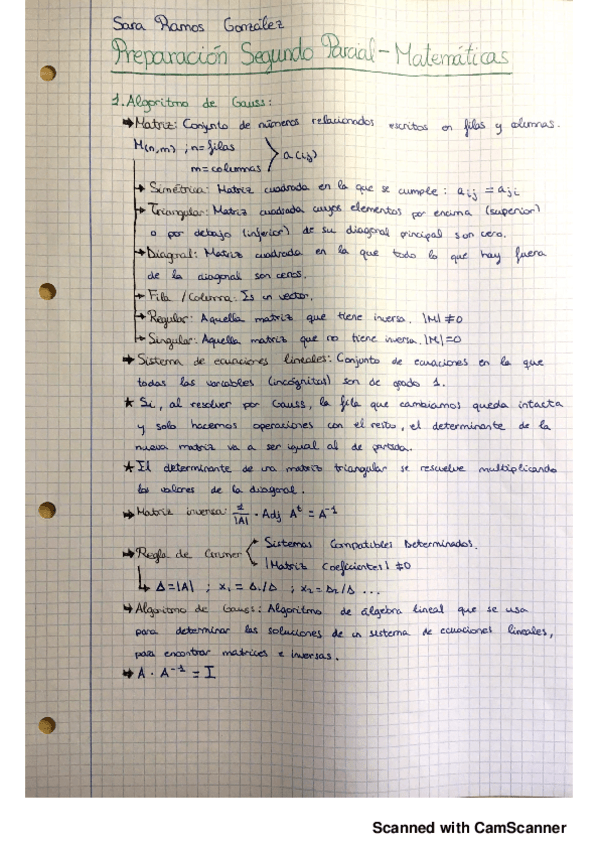 Sara Ramos González
Preparación Segundo Parcial - Matemáticas
1. Algoritmo de Gauss:
→ Matriz: Conjunto de números relacionados escritos en filas y columnas.
M(n,m) ; n=filas
m=columnas
a(ij)
→ Simétrica: Matriz cuadrada en la que se cumple: aij = aji
→ Triangular: Matriz cuadrada cuyos elementos por encima (superior)
o por debajo (inferior) de su diagonal principal son cero.
→ Diagonal: Matriz cuadrada en la que todo lo que hay fuera
de la diagonal son ceros.
→ Fila / Columna: Es un vector.
→ Regular: Aquella matriz que tiene inversa. |M| ≠ 0
→ Singular: Aquella matriz que no tiene inversa. |M| = 0
→ Sistema de ecuaciones lineales: Conjunto de ecuaciones en la que
todas las variables (incógnitas) son de grado 1.
★ Si, al resolver por Gauss, la fila que cambiamos queda intacta
y solo hacemos operaciones con el resto, el determinante de la
nueva matriz va a ser igual al de partida.
★ El determinante de una matriz triangular se resuelve multiplicando
los valores de la diagonal.
→ Matriz inversa: 1/|A| · Adj Aᵗ = A⁻¹
Sistemas Compatibles Determinados.
→ Regla de Cramer
|Matriz Coeficientes| ≠ 0
↳ Δ = |A| ; x₁ = Δ₁/Δ ; x₂ = Δ₂/Δ ...
→ Algoritmo de Gauss: Algoritmo de álgebra lineal que se usa
para determinar las soluciones de un sistema de ecuaciones lineales,
para encontrar matrices e inversas.
→ A · A⁻¹ = I
Scanned with CamScanner